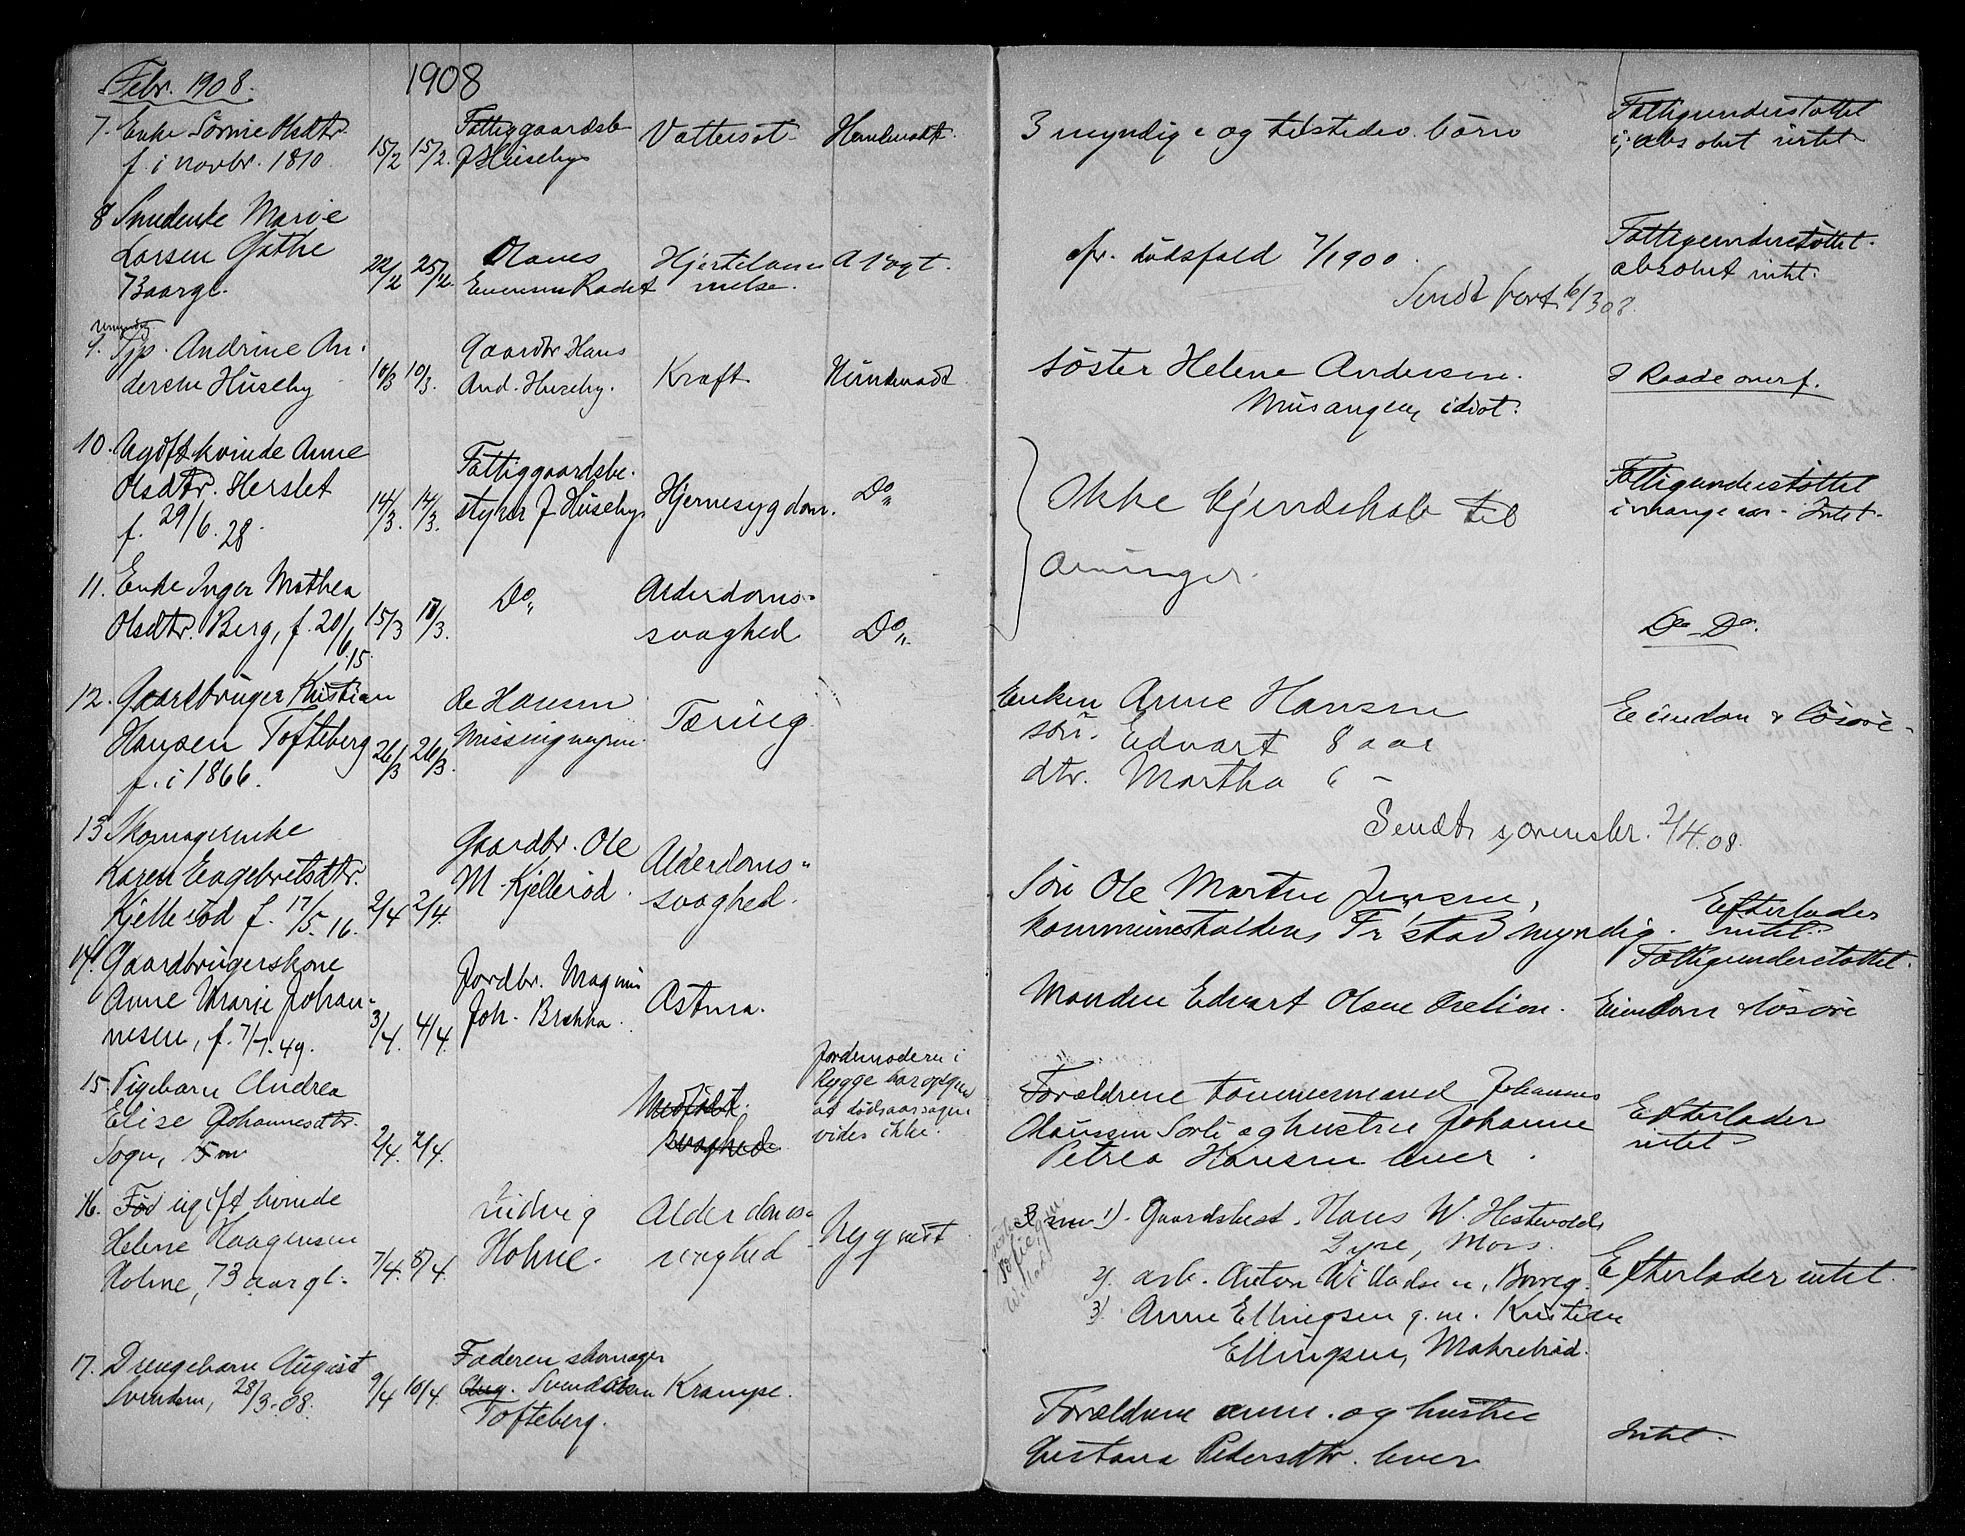 Febr. 1908.
1908
7. Enke Sörine Olsdtr.
f. i novbr. 1810.
15/2
15/2.
Fattiggaardsb
J Huseby
Vattersot.
3 myndige og tilstedev. börn
Fattigunderstöttet
absolut intet
8 Smedenke Marie
Larsen Gjethe
73 aar gl.
22/2
25/2.
Olaves
Evensen Rødet
Hjertelam
melse.
A Vogt.
fr. dödsfald 7/1900.
Sendt bort 6/3 08.
Fattigunderstöttet.
absolut intet.
9. Tjp. Andrine An-
dersen Huseby
10/3
10/3.
Gaardbr Hans
And. Huseby.
Kræft
söster Helene Andersen.
idiot.
I Raade overf.
10. Ugift kvinde Anne
Olsdtr. Herslet
f. 29/6.28.
14/3.
14/3.
Fattiggaardsbe.
styrer J Huseby
Hjernesygdom.
Do
Ikke kjendskab til
arvinger.
Fattigunderstöttet
i mange aar - Intet.
11. Enke Inger Mathea
Olsdtr. Berg, f. 20/6.15.
15/3
17/3.
Do
Alderdoms-
svaghed
Do
Do - Do.
12. Gaardbruger Kristian
Hansen Tofteberg
f. i 1866.
26/3
26/3.
Ole Hansen
Missingmyren
Tæring.
Enken Anne Hansen
sön. Edvart 8 aar
dtr. Martha 6 -
Eiendom & lösöre
Sendt sorenskr. 2/4.08.
13 Skomagerenke
Karen Engebretsdtr.
Kjellerød f. 17/5.16.
2/4
2/4.
Gaardbr. Ole
M. Kjelleröd.
Alderdoms-
svaghed.
Sön Ole Martin Jensen,
Fr stad myndig.
Efterlader
intet.
Fattigunderstöttet.
14. Gaardbrugerskone
Anne Marie Johan-
nesen, f. 7/7.49.
3/4.
4/4.
Jordbr. Magnus
Joh. Brekka.
Astma.
Manden Edvart Olsen
Eiendom & lösöre
15. Pigebarn Andrea
Elise Johannesdtr.
Sogn, 5 m
2/4.
2/4.
Medfödt
svaghed
Jordemoderen i
Rygge har opgivet
at dödsaarsagen
vides ikke.
Forældrene tömmermand Johannes
Olaussen og hustru Johanne
Petrea Hansen lever.
Efterlader
intet
16. Föd ugift kvinde
Helene Haagensen
Holme, 73 aar gl.
7/4.
8/4.
Ludvig
Holme.
Alderdoms-
svaghed
1). Gaardsbest. Hans W. Hestevold,
Mors.
2). arb. Anton Willadsen,
3). Anne Ellingsen g.m. Kristian
Ellingsen,
Efterlader intet.
17. Drengebarn August
Svendsen, 28/3.08.
9/4
10/4.
Faderen skomager
Aug. Svendsen
Tofteberg.
Krampe.
Forældrene anm. og hustru
Gustava Pedersdtr. lever
Intet.